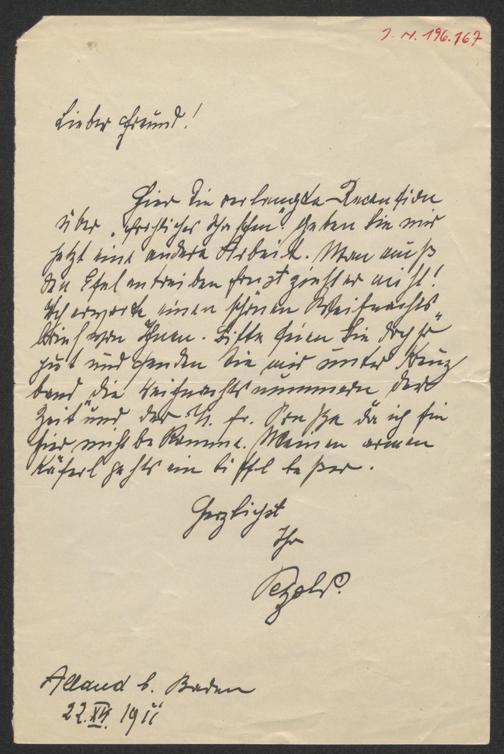 I. N. 196.767
Lieber Freund!
Hier die verlangte Recension
über „ Geben Sie mir
jetzt eine andere Arbeit. Man muß
den Esel antreiben sonst zieht er nicht!
Ich erwarte einen schönen Weihnachts„
brief von Ihnen. Bitte seien Sie doch so
gut und senden Sie mir unter Kreuz
band die Weihnachtsnummern der
Zeit und der N. Fr. Presse da ich sie
hier nicht bekomme. Meinem armen
geht's ein bissl besser.
Herzlichst
Ihr
Petzold.
Alland b. Baden
22. XII. 1911